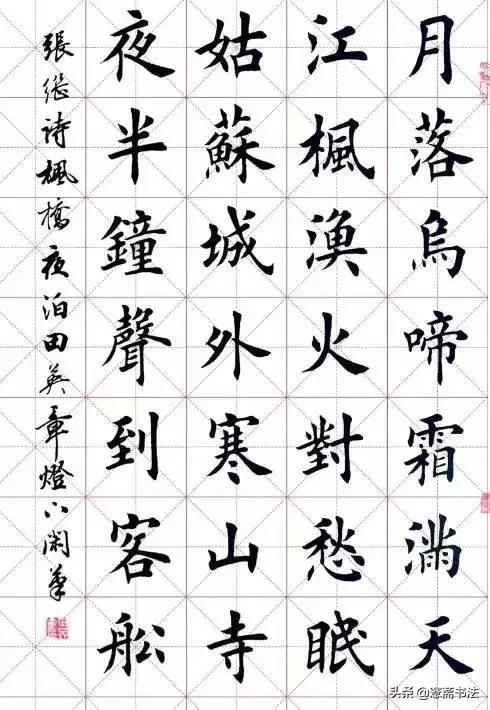 月落烏啼霜滿天
江楓漁火對愁眠
姑蘇城外寒山寺
夜半鐘聲到客船
張继诗楓橋夜泊田英章燈下闲筆
头条@憲斋书法